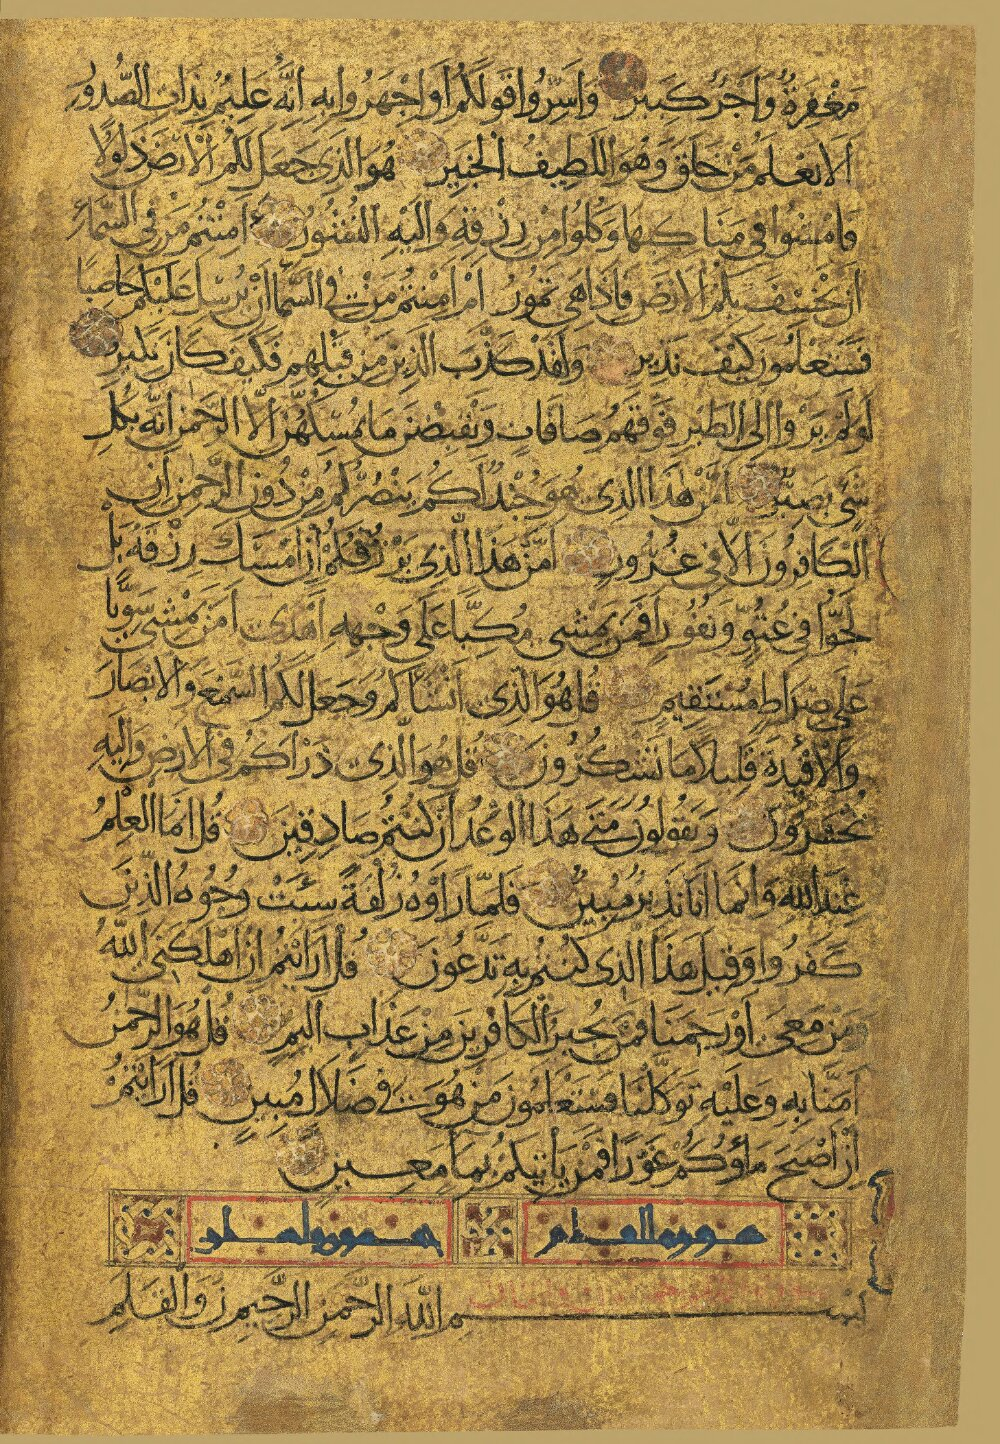 مَغْفِرَةٌ وَأَجْرٌ كَبِيرٌ وَاَسِرُّوا قَوْلَكُمْ اَوِ اجْهَرُوا بِهِ اِنَّهُ عَلِيمٌ بِذَاتِ الصُّدُورِ
الا يَعْلَمُ مَنْ خَلَقَ وَهُوَ اللَّطِيفُ الْخَبِيرُ هُوَ الَّذِي جَعَلَ لَكُمُ الْاَرْضَ ذَلُولًا
فَامْشُوا فِي مَنَاكِبِهَا وَكُلُوا مِنْ رِزْقِهِ وَاِلَيْهِ النُّشُورُ اَمِنْتُمْ مَنْ فِي السَّمَاءِ
اَنْ يَخْسِفَ بِكُمُ الْاَرْضَ فَاِذَا هِيَ تَمُورُ اَمْ اَمِنْتُمْ مَنْ فِي السَّمَا اَنْ يُرْسِلَ عَلَيْكُمْ حَاصِبًا
فَسَتَعْلَمُونَ كَيْفَ نَذِيرِ وَلَقَدْ كَذَّبَ الَّذِينَ مِنْ قَبْلِهِمْ فَكَيْفَ كَانَ نَكِيرِ
اَوَلَمْ يَرَوْا اِلَى الطَّيْرِ فَوْقَهُمْ صَافَّاتٍ وَيَقْبِضْنَ مَا يُمْسِكُهُنَّ اِلَّا الرَّحْمَنُ اِنَّهُ بِكُلِّ
شَيْءٍ بَصِيرٌ اَمَّنْ هَذَا الَّذِي هُوَ جُنْدٌ لَكُمْ يَنْصُرُكُمْ مِنْ دُونِ الرَّحْمَنِ اِنِ
الْكَافِرُونَ اِلَّا فِي غُرُورٍ اَمَّنْ هَذَا الَّذِي يَرْزُقُكُمْ اِنْ اَمْسَكَ رِزْقَهُ بَلْ
لَجُّوا فِي عُتُوٍّ وَنُفُورٍ اَفَمَنْ يَمْشِي مُكِبًّا عَلَى وَجْهِهِ اَهْدَى اَمَّنْ يَمْشِي سَوِيًّا
عَلَى صِرَاطٍ مُسْتَقِيمٍ قُلْ هُوَ الَّذِي اَنْشَأَكُمْ وَجَعَلَ لَكُمُ السَّمْعَ وَالْاَبْصَارَ
وَالْاَفْئِدَةَ قَلِيلًا مَا تَشْكُرُونَ قُلْ هُوَ الَّذِي ذَرَاَكُمْ فِي الْاَرْضِ وَاِلَيْهِ
تُحْشَرُونَ وَيَقُولُونَ مَتَى هَذَا الْوَعْدُ اِنْ كُنْتُمْ صَادِقِينَ قُلْ اِنَّمَا الْعِلْمُ
عِنْدَ اللهِ وَاِنَّمَا اَنَا نَذِيرٌ مُبِينٌ فَلَمَّا رَاَوْهُ زُلْفَةً سِيئَتْ وُجُوهُ الَّذِينَ
كَفَرُوا وَقِيلَ هَذَا الَّذِي كُنْتُمْ بِهِ تَدَّعُونَ قُلْ اَرَاَيْتُمْ اِنْ اَهْلَكَنِيَ اللهُ
وَمَنْ مَعِيَ اَوْ رَحِمَنَا فَمَنْ يُجِيرُ الْكَافِرِينَ مِنْ عَذَابٍ اَلِيمٍ قُلْ هُوَ الرَّحْمَنُ
اَمَنَّا بِهِ وَعَلَيْهِ تَوَكَّلْنَا فَسَتَعْلَمُونَ مَنْ هُوَ فِي ضَلَالٍ مُبِينٍ قُلْ اَرَاَيْتُمْ
اِنْ اَصْبَحَ مَاؤُكُمْ غَوْرًا فَمَنْ يَاْتِيكُمْ بِمَا مَعِينٍ
سورة القلم خمسون
بِسْمِ اللهِ الرَّحْمَنِ الرَّحِيمِ نْ وَالْقَلَمِ